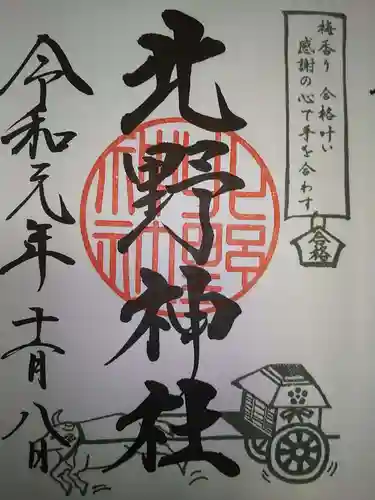 梅香り 合格叶い
感謝の心で手を合わす
合格
北野神社
北野神社
令和元年 十一月 八日